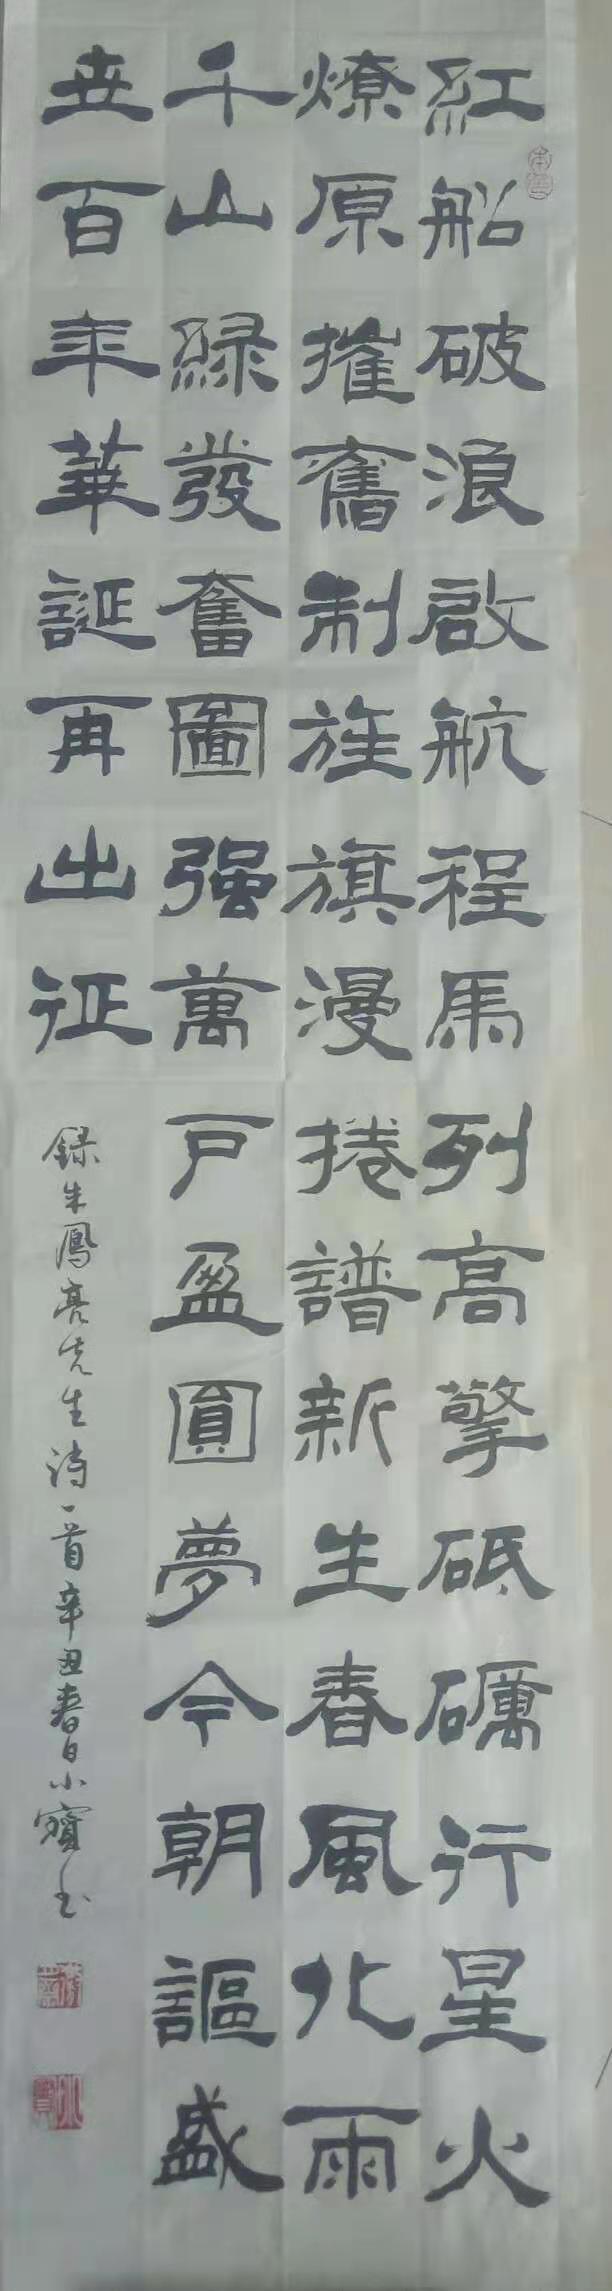 紅船破浪啟航程馬列高擎砥礪行星火
燎原摧舊制旌旗漫捲譜新生春風化雨
千山緑發奮圖强萬戶盈圓夢今朝謳盛
世百年華誕再出征
録朱鳳亮先生诗一首辛丑春日小寶书